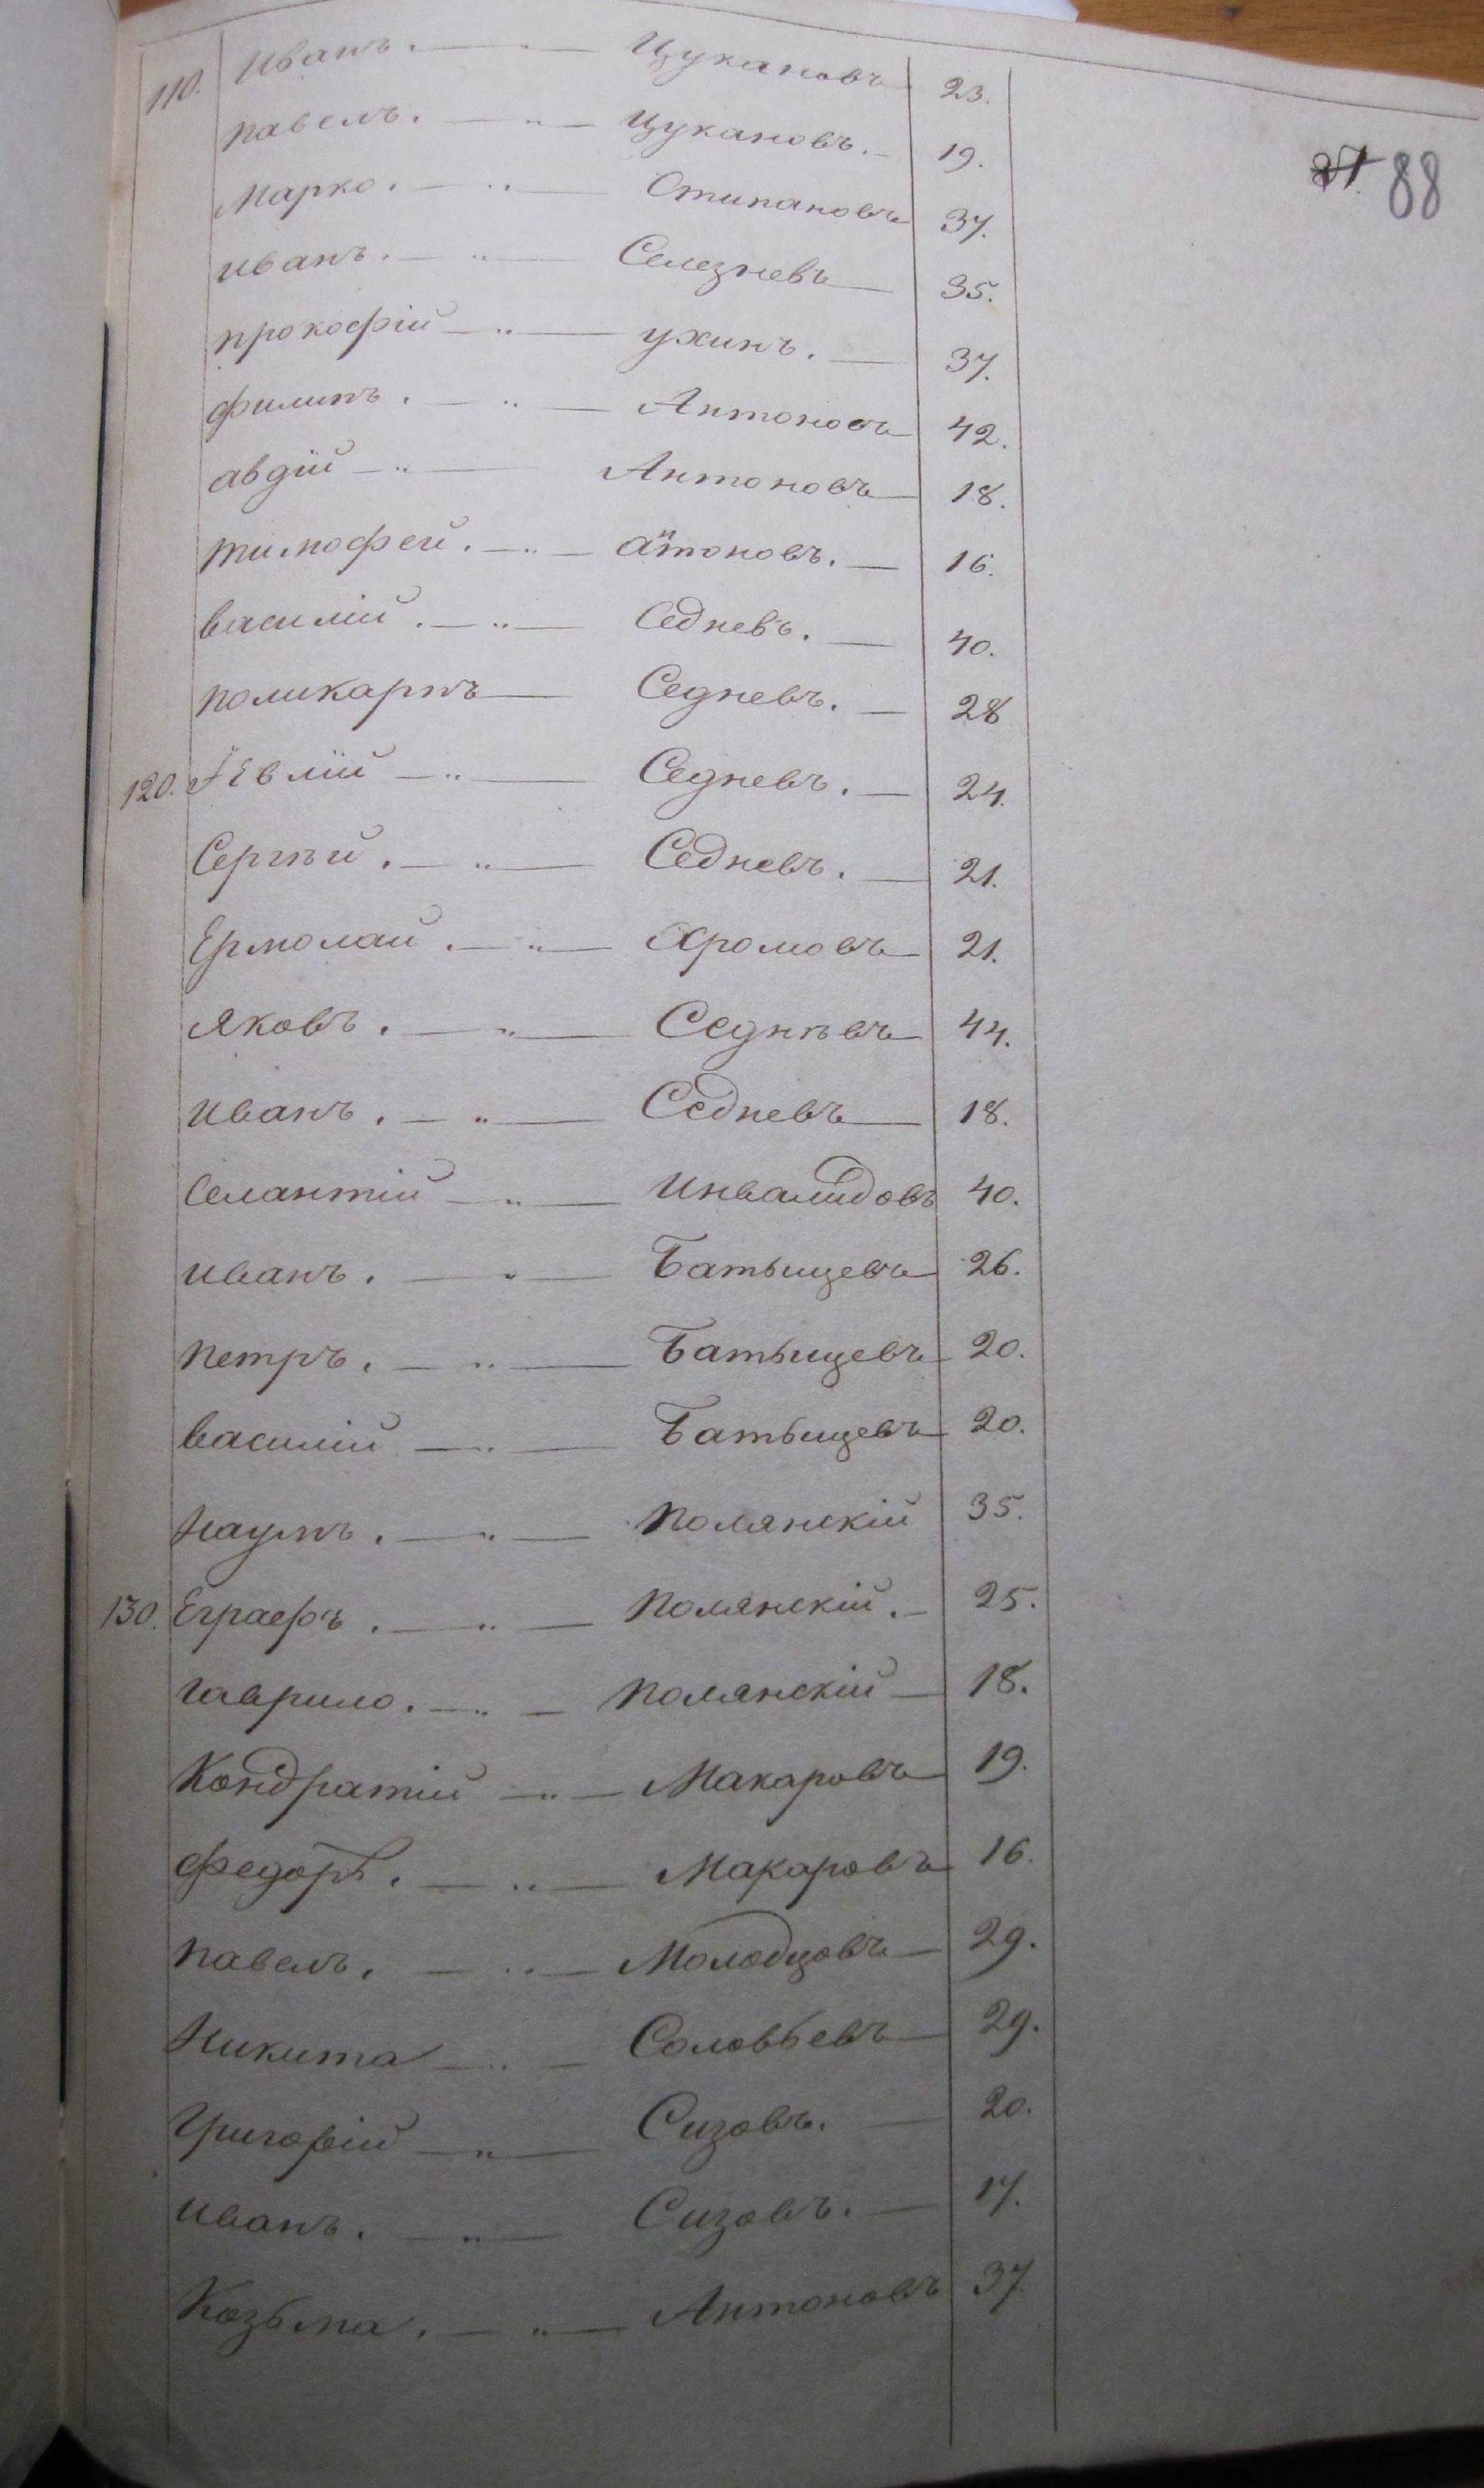 87. 88
110. Иванъ. — „ — Цукановъ 23.
павелъ. — „ — Цукановъ. — 19.
Марко. — „ — Стипановъ 37.
иванъ. — „ — Селезневъ — 35.
прокофій — „ — ухинъ. — 37.
филипъ. — „ — Антоновъ 42.
авдій — „ — Антоновъ 18.
тимофей. — „ — антоновъ. — 16.
василій. — „ — Седневъ. — 40.
поликарпъ — Седневъ. — 28
120. — „ — Седневъ. — 24.
Сергѣй. — „ — Седневъ. — 21.
Ермолай. — „ — Хромовъ 21.
Яковъ. — „ — Седнѣвъ 44.
иванъ. — „ — Седневъ 18.
Селантій — „ — Инвалидовъ 40.
иванъ. — „ — Батыщевъ 26.
петръ. — „ — Батыщевъ 20.
василій — „ — Батыщевъ 20.
Наумъ. — „ — Полянскій 35.
130. Еграфъ. — „ — Полянскій. — 25.
гаврило. — „ — Полянскій — 18.
Кондратій — „ — Макаровъ 19.
Федоръ. — „ — Макаровъ 16.
павелъ. — „ — Молодцовъ — 29.
Никита — „ — Соловьевъ 29.
Григорій — „ — Сизовъ. — 20.
иванъ. — „ — Сизовъ. — 17.
Козьма. — „ — Антоновъ 37